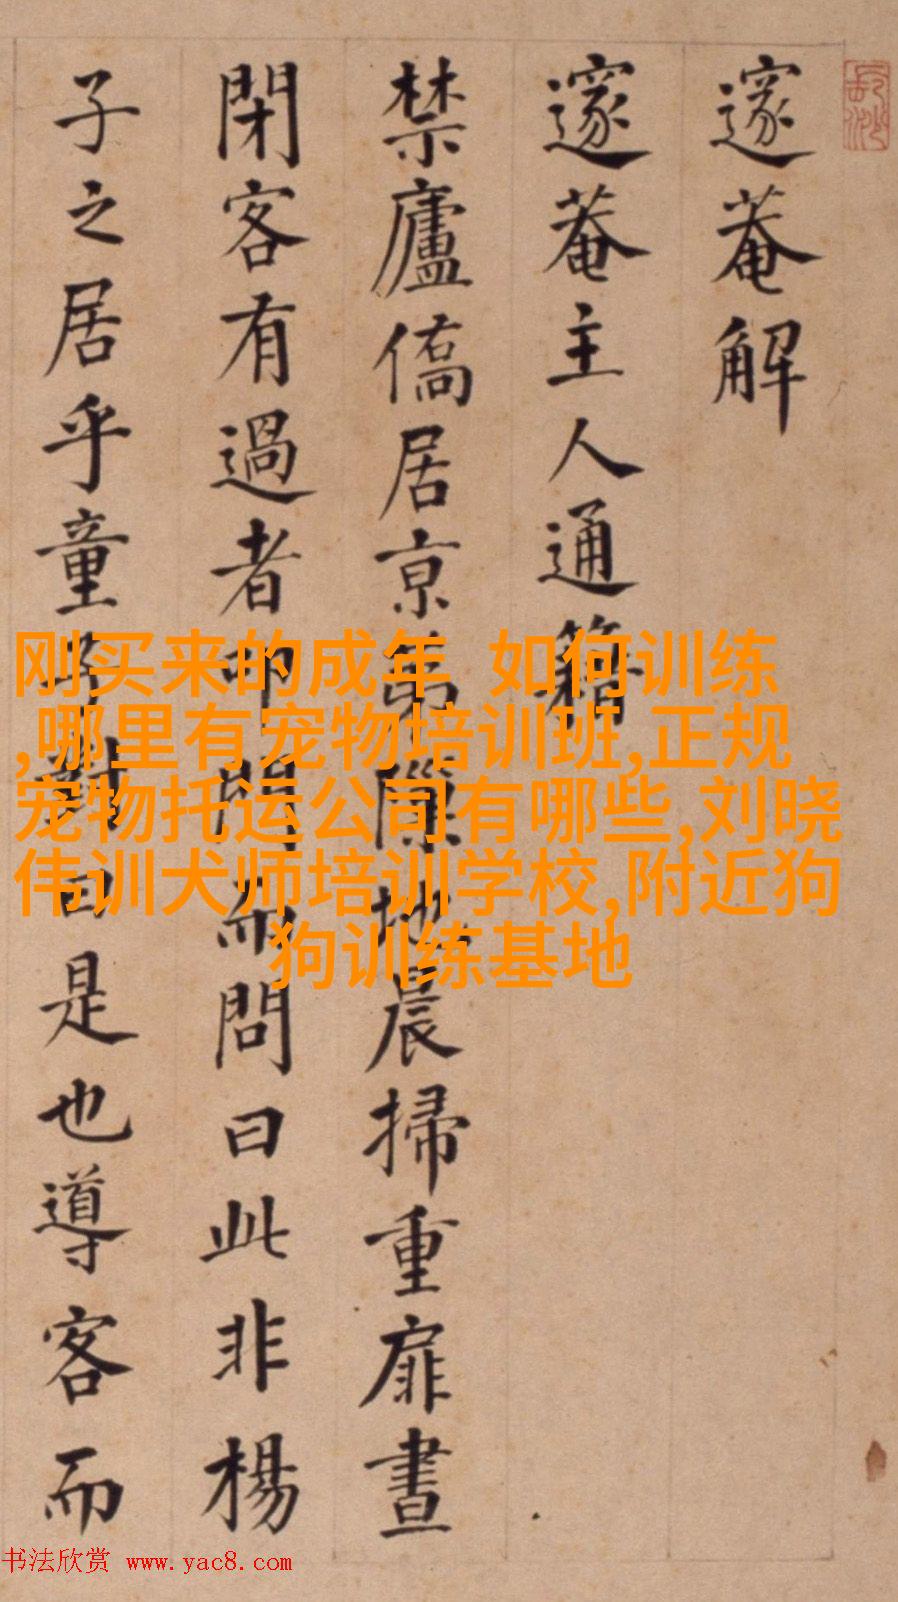 邃菴解
邃菴主人通籍
禁廬僑居京第隟地晨掃重扉晝
閉客有過者叩門而問曰此非楊
子之居乎童子對曰是也導客而
刚买来的成年 如何训练
,哪里有宠物培训班,正规
宠物托运公司有哪些,刘晓
伟训犬师培训学校,附近狗
狗训练基地
书法欣赏 www.yac8.com